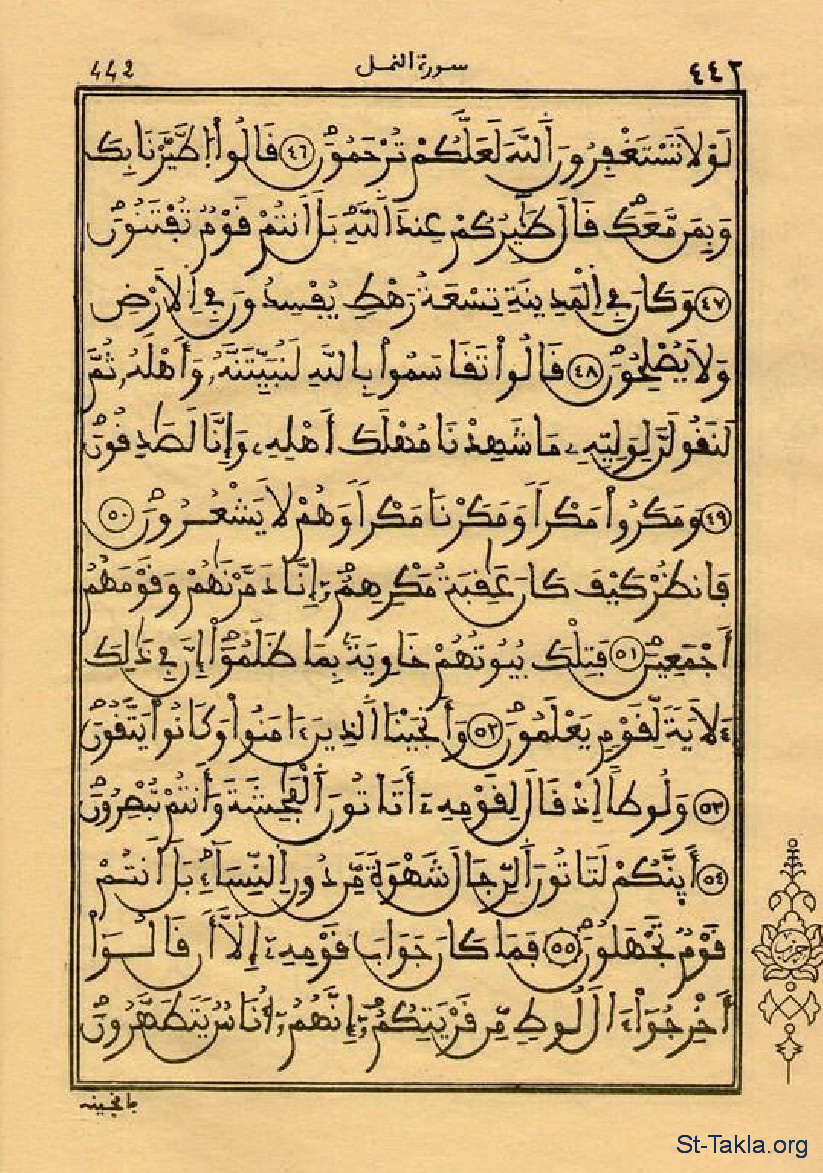 442 سورة النمل ٤٤٢
لَوْلَا تَسْتَغْفِرُونَ اَ۬للَّهَ لَعَلَّكُمْ تُرْحَمُونَۖ ٤٦ قَالُواْ اُ۪طَّيَّرْنَا بِكَ
وَبِمَن مَّعَكَۖ قَالَ طَٰٓئِرُكُمْ عِندَ اَ۬للَّهِۖ بَلَ اَنتُمْ قَوْمٞ تُفْتَنُونَۖ
٤٧ وَكَانَ فِے اِ۬لْمَدِينَةِ تِسْعَةُ رَهْطٖ يُفْسِدُونَ فِے اِ۬لَارْضِ
وَلَا يُصْلِحُونَۖ ٤٨ قَالُواْ تَقَاسَمُواْ بِاللَّهِ لَنُبَيِّتَنَّهُۥ وَأَهْلَهُۥ ثُمَّ
لَنَقُولَنَّ لِوَلِيِّهِۦ مَا شَهِدْنَا مُهْلَكَ أَهْلِهِۦ وَإِنَّا لَصَٰدِقُونَۖ
٤٩ وَمَكَرُواْ مَكْراٗ وَمَكَرْنَا مَكْراٗ وَهُمْ لَا يَشْعُرُونَۖ ٥٠
فَانظُرْ كَيْفَ كَانَ عَٰقِبَةُ مَكْرِهِمُۥٓ إِنَّا دَمَّرْنَٰهُمْ وَقَوْمَهُمُۥٓ
أَجْمَعِينَۖ ٥١ فَتِلْكَ بُيُوتُهُمْ خَاوِيَةَۢ بِمَا ظَلَمُوٓاْۖ إِنَّ فِے ذَٰلِكَ
ءَلَايَةٗ لِّقَوْمٖ يَعْلَمُونَۖ ٥٢ وَأَنجَيْنَا اَ۬لذِينَ ءَامَنُواْ وَكَانُواْ يَتَّقُونَۖ
٥٣ وَلُوطاً اِذْ قَالَ لِقَوْمِهِۦٓ أَتَاتُونَ اَ۬لْفَٰحِشَةَ وَأَنتُمْ تُبْصِرُونَۖ
٥٤ أَئِنَّكُمْ لَتَاتُونَ اَ۬لرِّجَالَ شَهْوَةٗ مِّن دُونِ اِ۬لنِّسَآءِۖ بَلَ اَنتُمْ
قَوْمٞ تَجْهَلُونَۖ ٥٥ فَمَا كَانَ جَوَابَ قَوْمِهِۦٓ إِلَّآ أَن قَالُوٓاْ
أَخْرِجُوٓاْ ءَالَ لُوطٖ مِّن قَرْيَتِكُمُۥٓ إِنَّهُمُۥٓ أُنَاسٞ يَتَطَهَّرُونَۖ
حزب
فانجينه
St-Takla.org